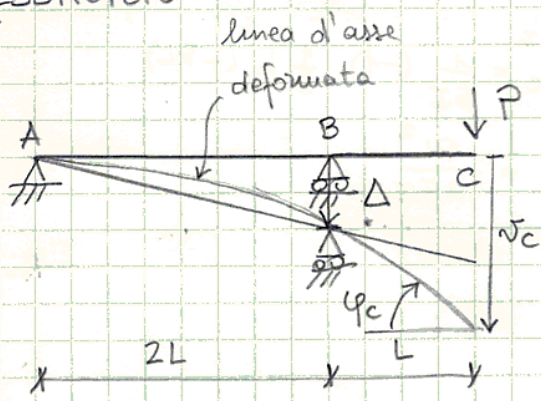 linea d'asse
deformata
A
B
P
C
Δ
vc
φc
2L
L